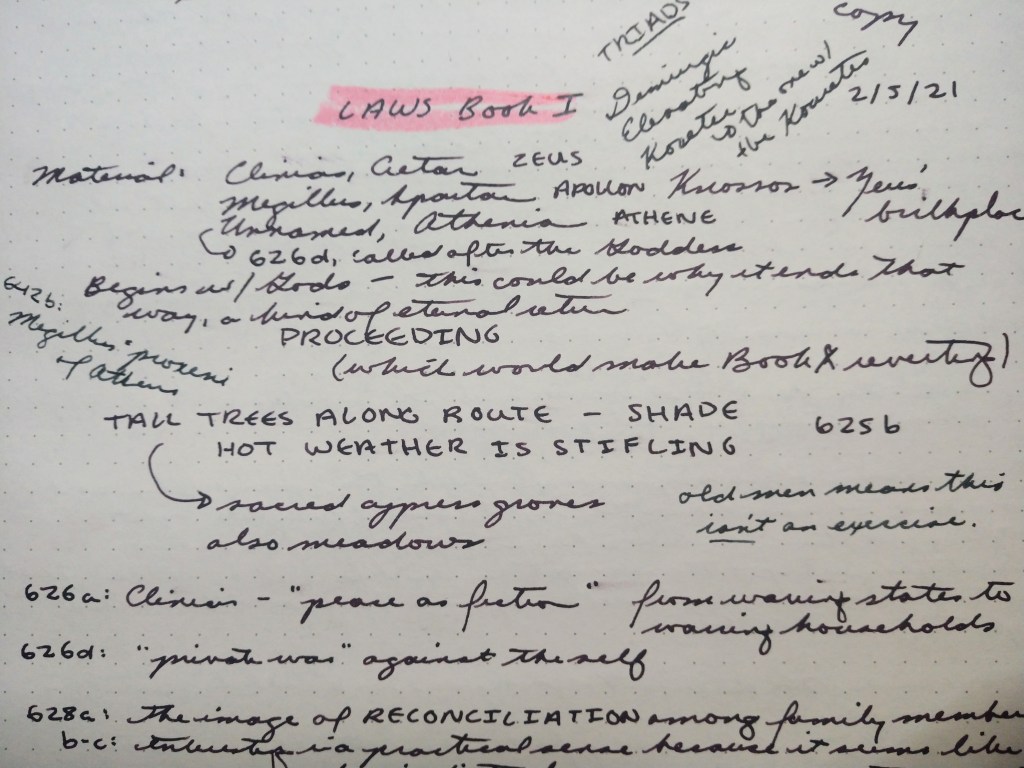 copy
TRIADS
2/5/21
LAWS Book I
Demiurgic
Elevating
to the one w/
the Kouretes
Material: Clinias, Cretan ZEUS
Megillus, Spartan APOLLON Knossos → Zeus'
birthplac
Unnamed, Athenian ATHENE
626d, called after the Goddess
Begins w/ Gods – this could be why it ends that
way, a kind of eternal return
PROCEEDING
(which would make Book X reverting)
642b:
Megillus - proxeni
of Athens
TALL TREES ALONG ROUTE – SHADE
HOT WEATHER IS STIFLING 625b
sacred cypress groves
also meadows
old men means this
isn't an exercise.
626a: Clinias – "peace as fiction" from warring states to
warring households
626d: "private war" against the self
628a: the image of RECONCILIATION among family member
b-c: in a practical sense because it seems like